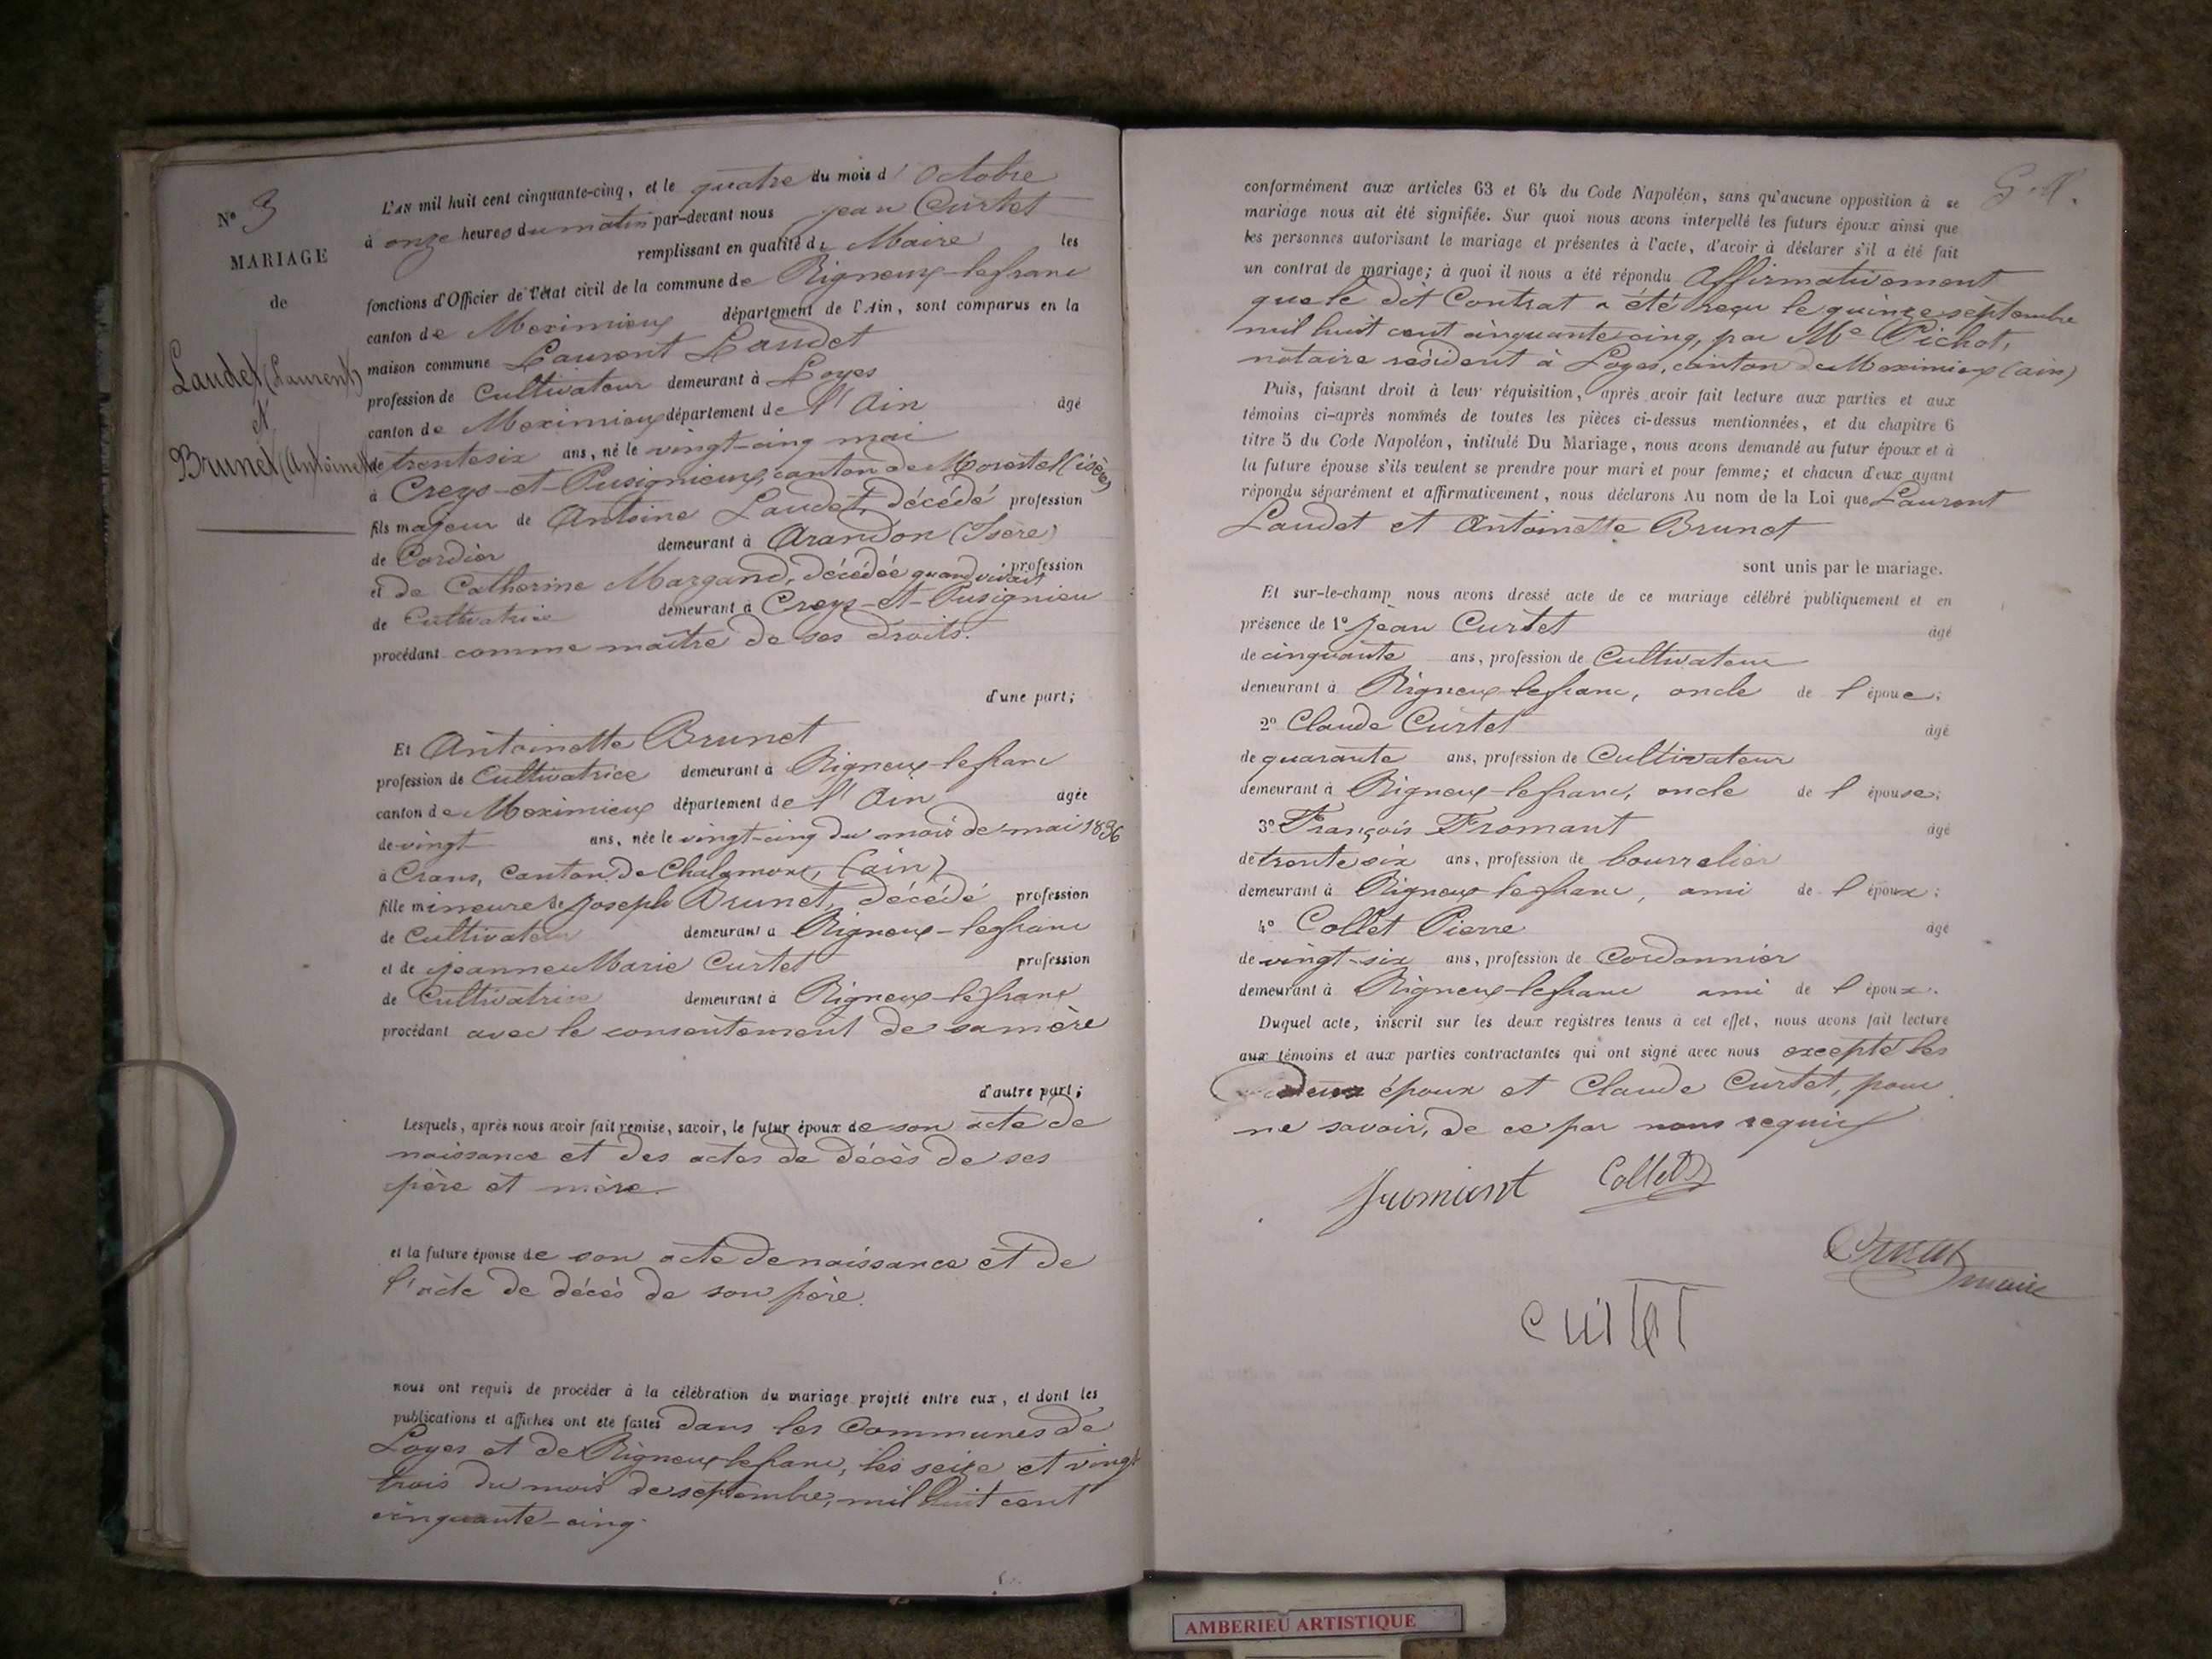 N° 3
MARIAGE
de
Laudet (Laurent)
et
Brunet (Antoinette)
L'AN mil huit cent cinquante-cinq, et le quatre du mois d'Octobre
à onze heures du matin par-devant nous jean Curtet
remplissant en qualité de Maire les
fonctions d'Officier de l'état civil de la commune de Rigneux-lefranc
canton de Meximieux département de l'Ain, sont comparus en la
maison commune Laurent Laudet
profession de Cultivateur demeurant à Loyes
canton de Meximieux département de l'Ain âgé
de trente six ans, né le vingt-cinq mai
à Creys-et-Pusignieux, canton de Morestel (isère)
fils majeur de Antoine Laudet, décédé profession
de Cordier demeurant à Arandon (Isère)
et de Catherine Margand, décédée quand vivait profession
de Cultivatrice demeurant à Creys-et-Pusignieu
procédant comme maître de ses droits.
d'une part;
Et Antoinette Brunet
profession de Cultivatrice demeurant à Rigneux-lefranc
canton de Meximieux département de l'Ain agée
de vingt ans, née le vingt-cinq du mois de mai 1836
à Crans, Canton de Chalamont, (ain)
fille mineure de Joseph Brunet, décédé profession
de Cultivateur demeurant à Rigneux-lefranc
et de jeanne Marie Curtet profession
de Cultivatrice demeurant à Rigneux-lefranc
procédant avec le consentement de sa mère
d'autre part;
Lesquels, après nous avoir fait remise, savoir, le futur époux de son acte de
naissance et des actes de décès de ses
père et mère.
et la future épouse de son acte de naissance et de
l'acte de décès de son père.
nous ont requis de procéder à la célébration du mariage projeté entre eux, et dont les
publications et affiches ont été faites dans les Communes de
Loyes et de Rigneux lefranc, les seize et vingt
trois du mois de septembre, mil huit cent
cinquante-cinq.
conformément aux articles 63 et 64 du Code Napoléon, sans qu'aucune opposition à ce
mariage nous ait été signifiée. Sur quoi nous avons interpellé les futurs époux ainsi que
les personnes autorisant le mariage et présentes à l'acte, d'avoir à déclarer s'il a été fait
un contrat de mariage; à quoi il nous a été répondu Affirmativement
que le dit Contrat a été reçu le quinze septembre
mil huit cent cinquante cinq, par Me Pichot,
notaire résident à Loyes, canton de Meximieux (ain)
Puis, faisant droit à leur réquisition, après avoir fait lecture aux parties et aux
témoins ci-après nommés de toutes les pièces ci-dessus mentionnées, et du chapitre 6
titre 5 du Code Napoléon, intitulé Du Mariage, nous avons demandé au futur époux et à
la future épouse s'ils veulent se prendre pour mari et pour femme; et chacun d'eux ayant
répondu séparément et affirmativement, nous déclarons Au nom de la Loi que Laurent
Laudet et Antoinette Brunet
sont unis par le mariage.
Et sur-le-champ nous avons dressé acte de ce mariage célébré publiquement et en
présence de 1° jean Curtet âgé
de cinquante ans, profession de Cultivateur
demeurant à Rigneux lefranc, oncle de l'épouse;
2° Claude Curtet âgé
de quarante ans, profession de Cultivateur
demeurant à Rigneux-lefranc, oncle de l'épouse;
3° François Fromant âgé
de trente six ans, profession de bourrelier
demeurant à Rigneux lefranc, ami de l'époux;
4° Collet Pierre âgé
de vingt-six ans, profession de Cordonnier
demeurant à Rigneux-lefranc ami de l'époux.
Duquel acte, inscrit sur les deux registres tenus à cet effet, nous avons fait lecture
aux témoins et aux parties contractantes qui ont signé avec nous excepté les
deux époux et Claude Curtet, pour
ne savoir, de ce par nous requis
fromant Collet
Curtet maire
Curtet
AMBERIEU ARTISTIQUE